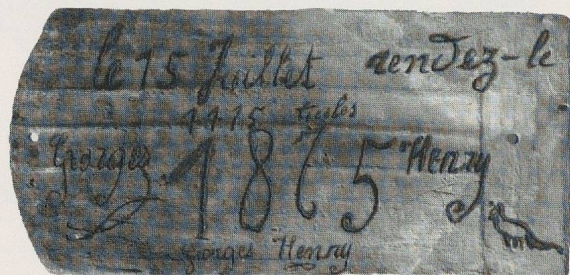 le 15 Juillet rendez-le
1115 tuiles
Gorges 1865 Henry
Gorges Henry